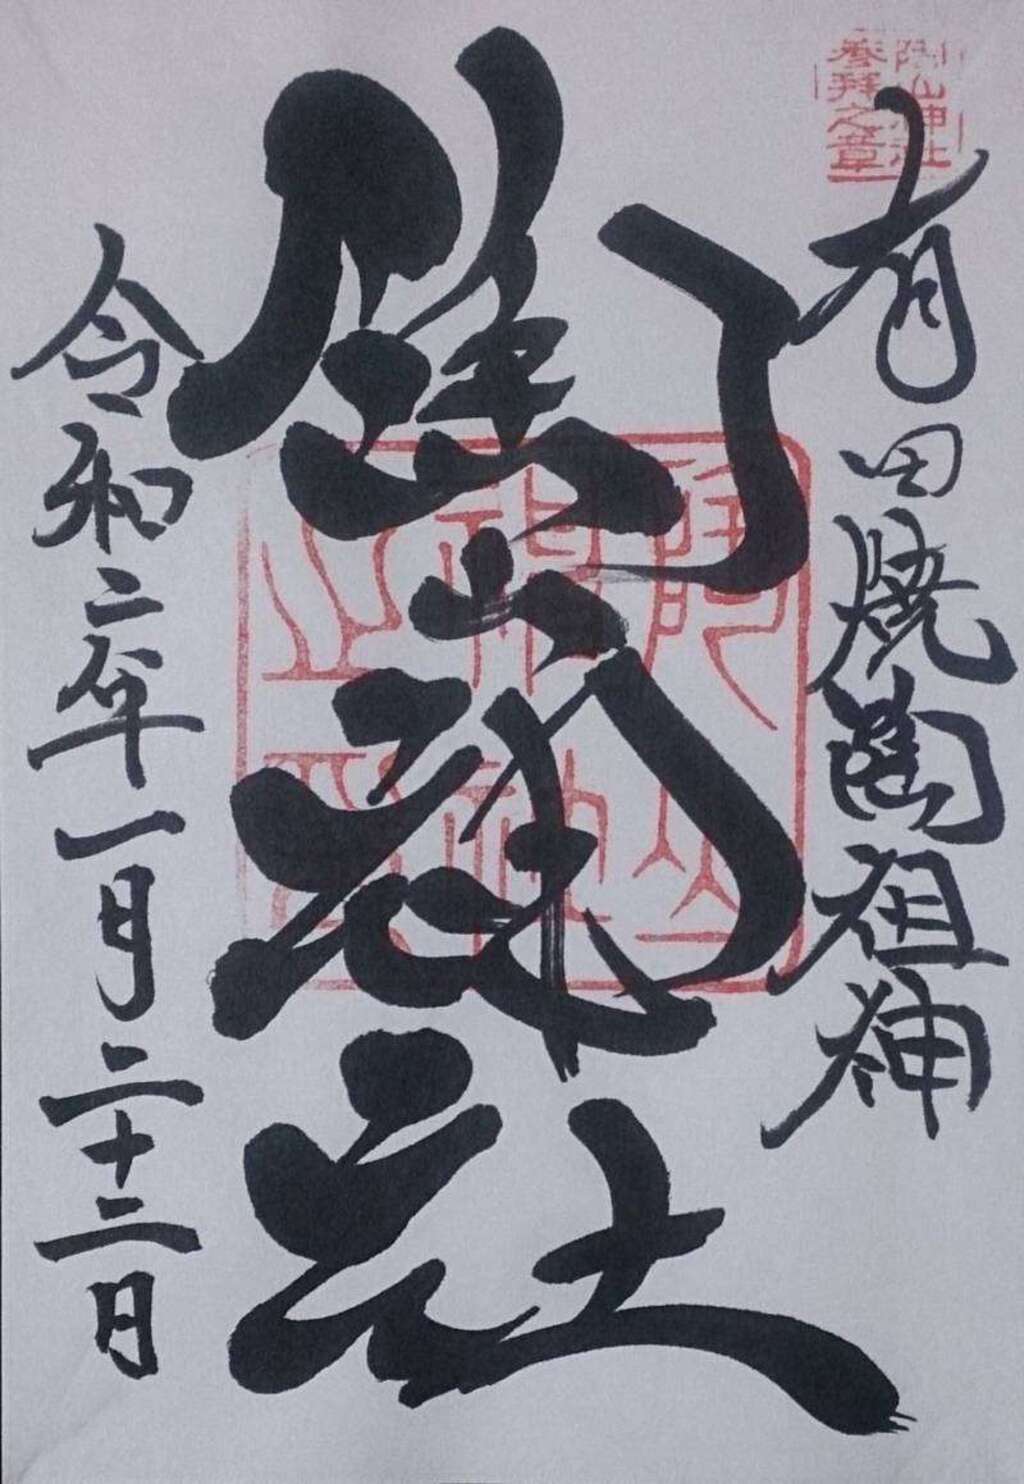 陶山神社
参拝之章
有田焼陶祖神
陶山神社
陶山
神社
之印
令和二年一月二十三日